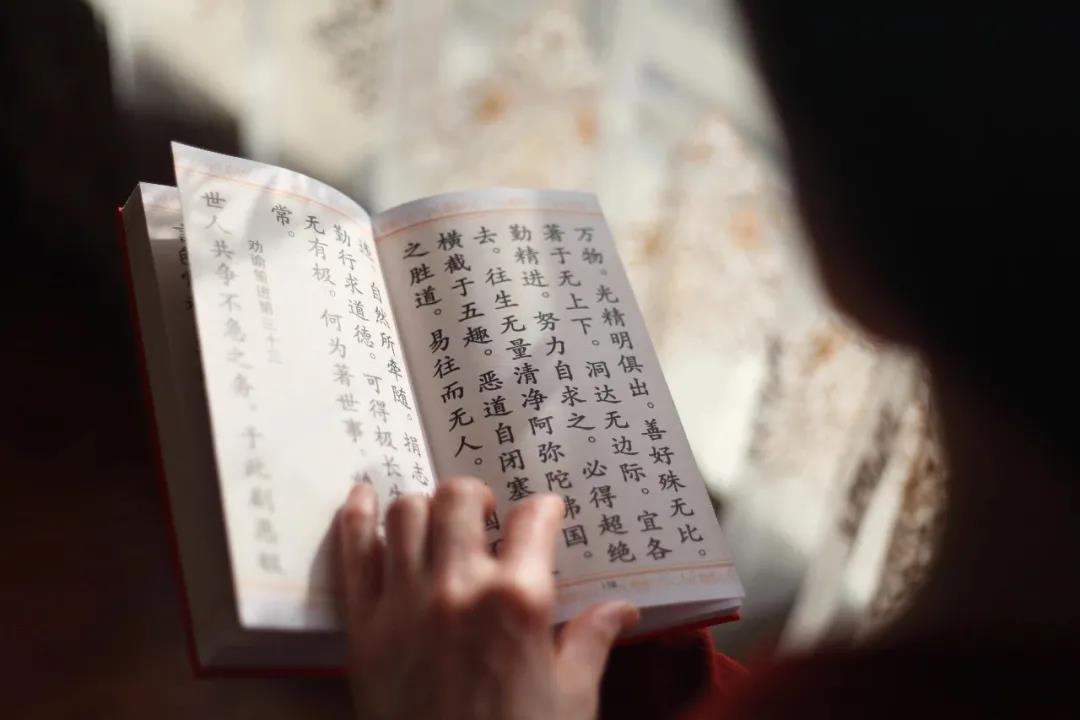 万物。光精明俱出。善好殊无比。
著于无上下。洞达无边际。宜各
勤精进。努力自求之。必得超绝
去。往生无量清净阿弥陀佛国。
横截于五趣。恶道自闭塞
之胜道。易往而无人。
违。自然所牵随。捐志
勤行求道德。可得极长生
无有极。何为著世事。
常。
劝谕策进第三十三
世人共争不急之务。于此剧恶极